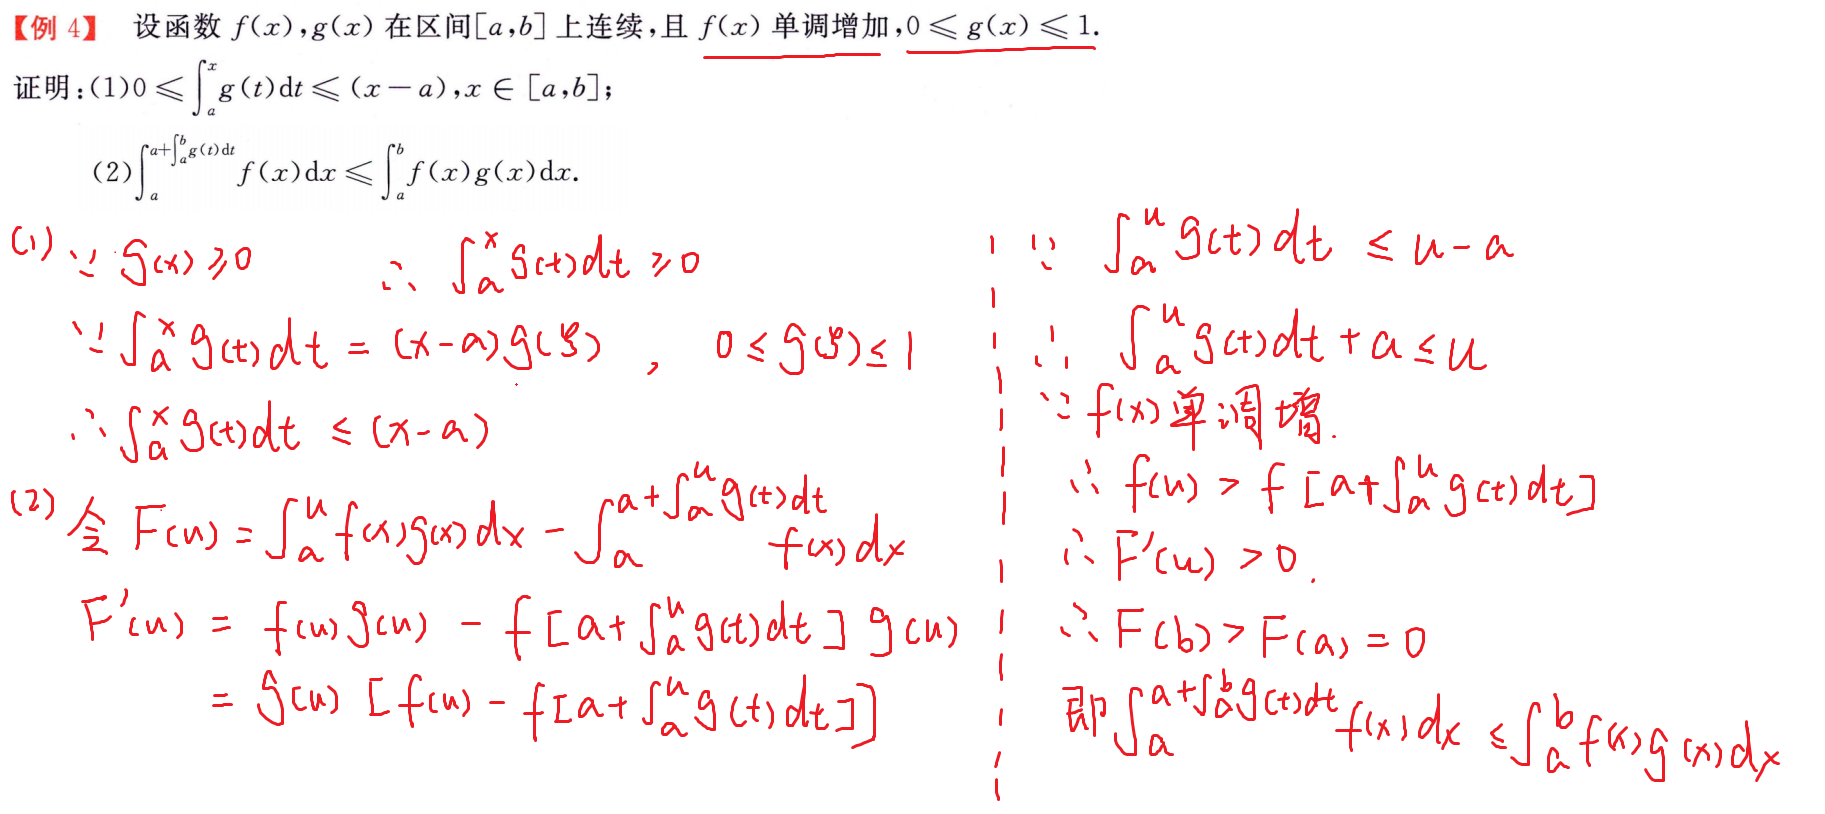 【例 4】 设函数 f(x),g(x) 在区间[a,b] 上连续,且 f(x) 单调增加,0 ≤ g(x) ≤ 1.
证明:(1)0 ≤ ∫_a^x g(t)dt ≤ (x − a),x ∈ [a,b];
(2)∫_a^{a+∫_a^b g(t)dt} f(x)dx ≤ ∫_a^b f(x)g(x)dx.
(1) ∵ g(x) ≥ 0 ∴ ∫_a^x g(t)dt ≥ 0
∵ ∫_a^x g(t)dt = (x-a)g(ξ) , 0 ≤ g(ξ) ≤ 1
∴ ∫_a^x g(t)dt ≤ (x-a)
(2) 令 F(u) = ∫_a^u f(x)g(x)dx - ∫_a^{a+∫_a^u g(t)dt} f(x)dx
F'(u) = f(u)g(u) - f[a+∫_a^u g(t)dt] g(u)
= g(u) [f(u) - f[a+∫_a^u g(t)dt]]
∵ ∫_a^u g(t)dt ≤ u-a
∴ ∫_a^u g(t)dt + a ≤ u
∵ f(x) 单调增.
∴ f(u) > f[a+∫_a^u g(t)dt]
∴ F'(u) > 0.
∴ F(b) > F(a) = 0
即 ∫_a^{a+∫_a^b g(t)dt} f(x)dx ≤ ∫_a^b f(x)g(x)dx